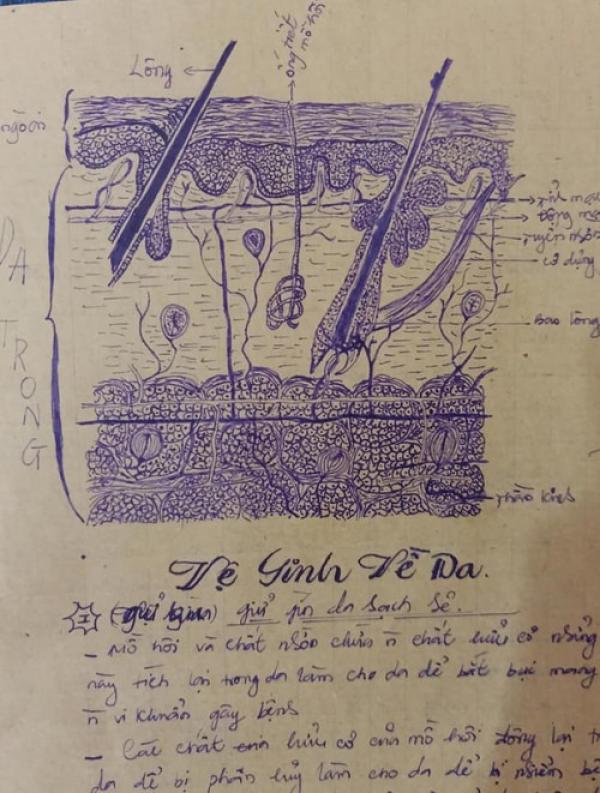 ống tiết
mồ hôi
Lông
ngoài
DA
TRONG
Tĩnh mạ
Động mạ
Tuyến nhờn
Cơ dựng
Bao lông
Thần kinh
Vệ Sinh Về Da.
I giử gìn da sạch sẽ.
- Mồ hôi và chất nhờn chứa n̄ chất hửu cơ những
này tích lại trong da làm cho da dể bắt bụi mang
n̄ vi khuẩn gây bệnh
- Các chất hửu cơ của mồ hôi đông lại tr
da dể bị phân huỷ làm cho da dể bị nhiểm bệ